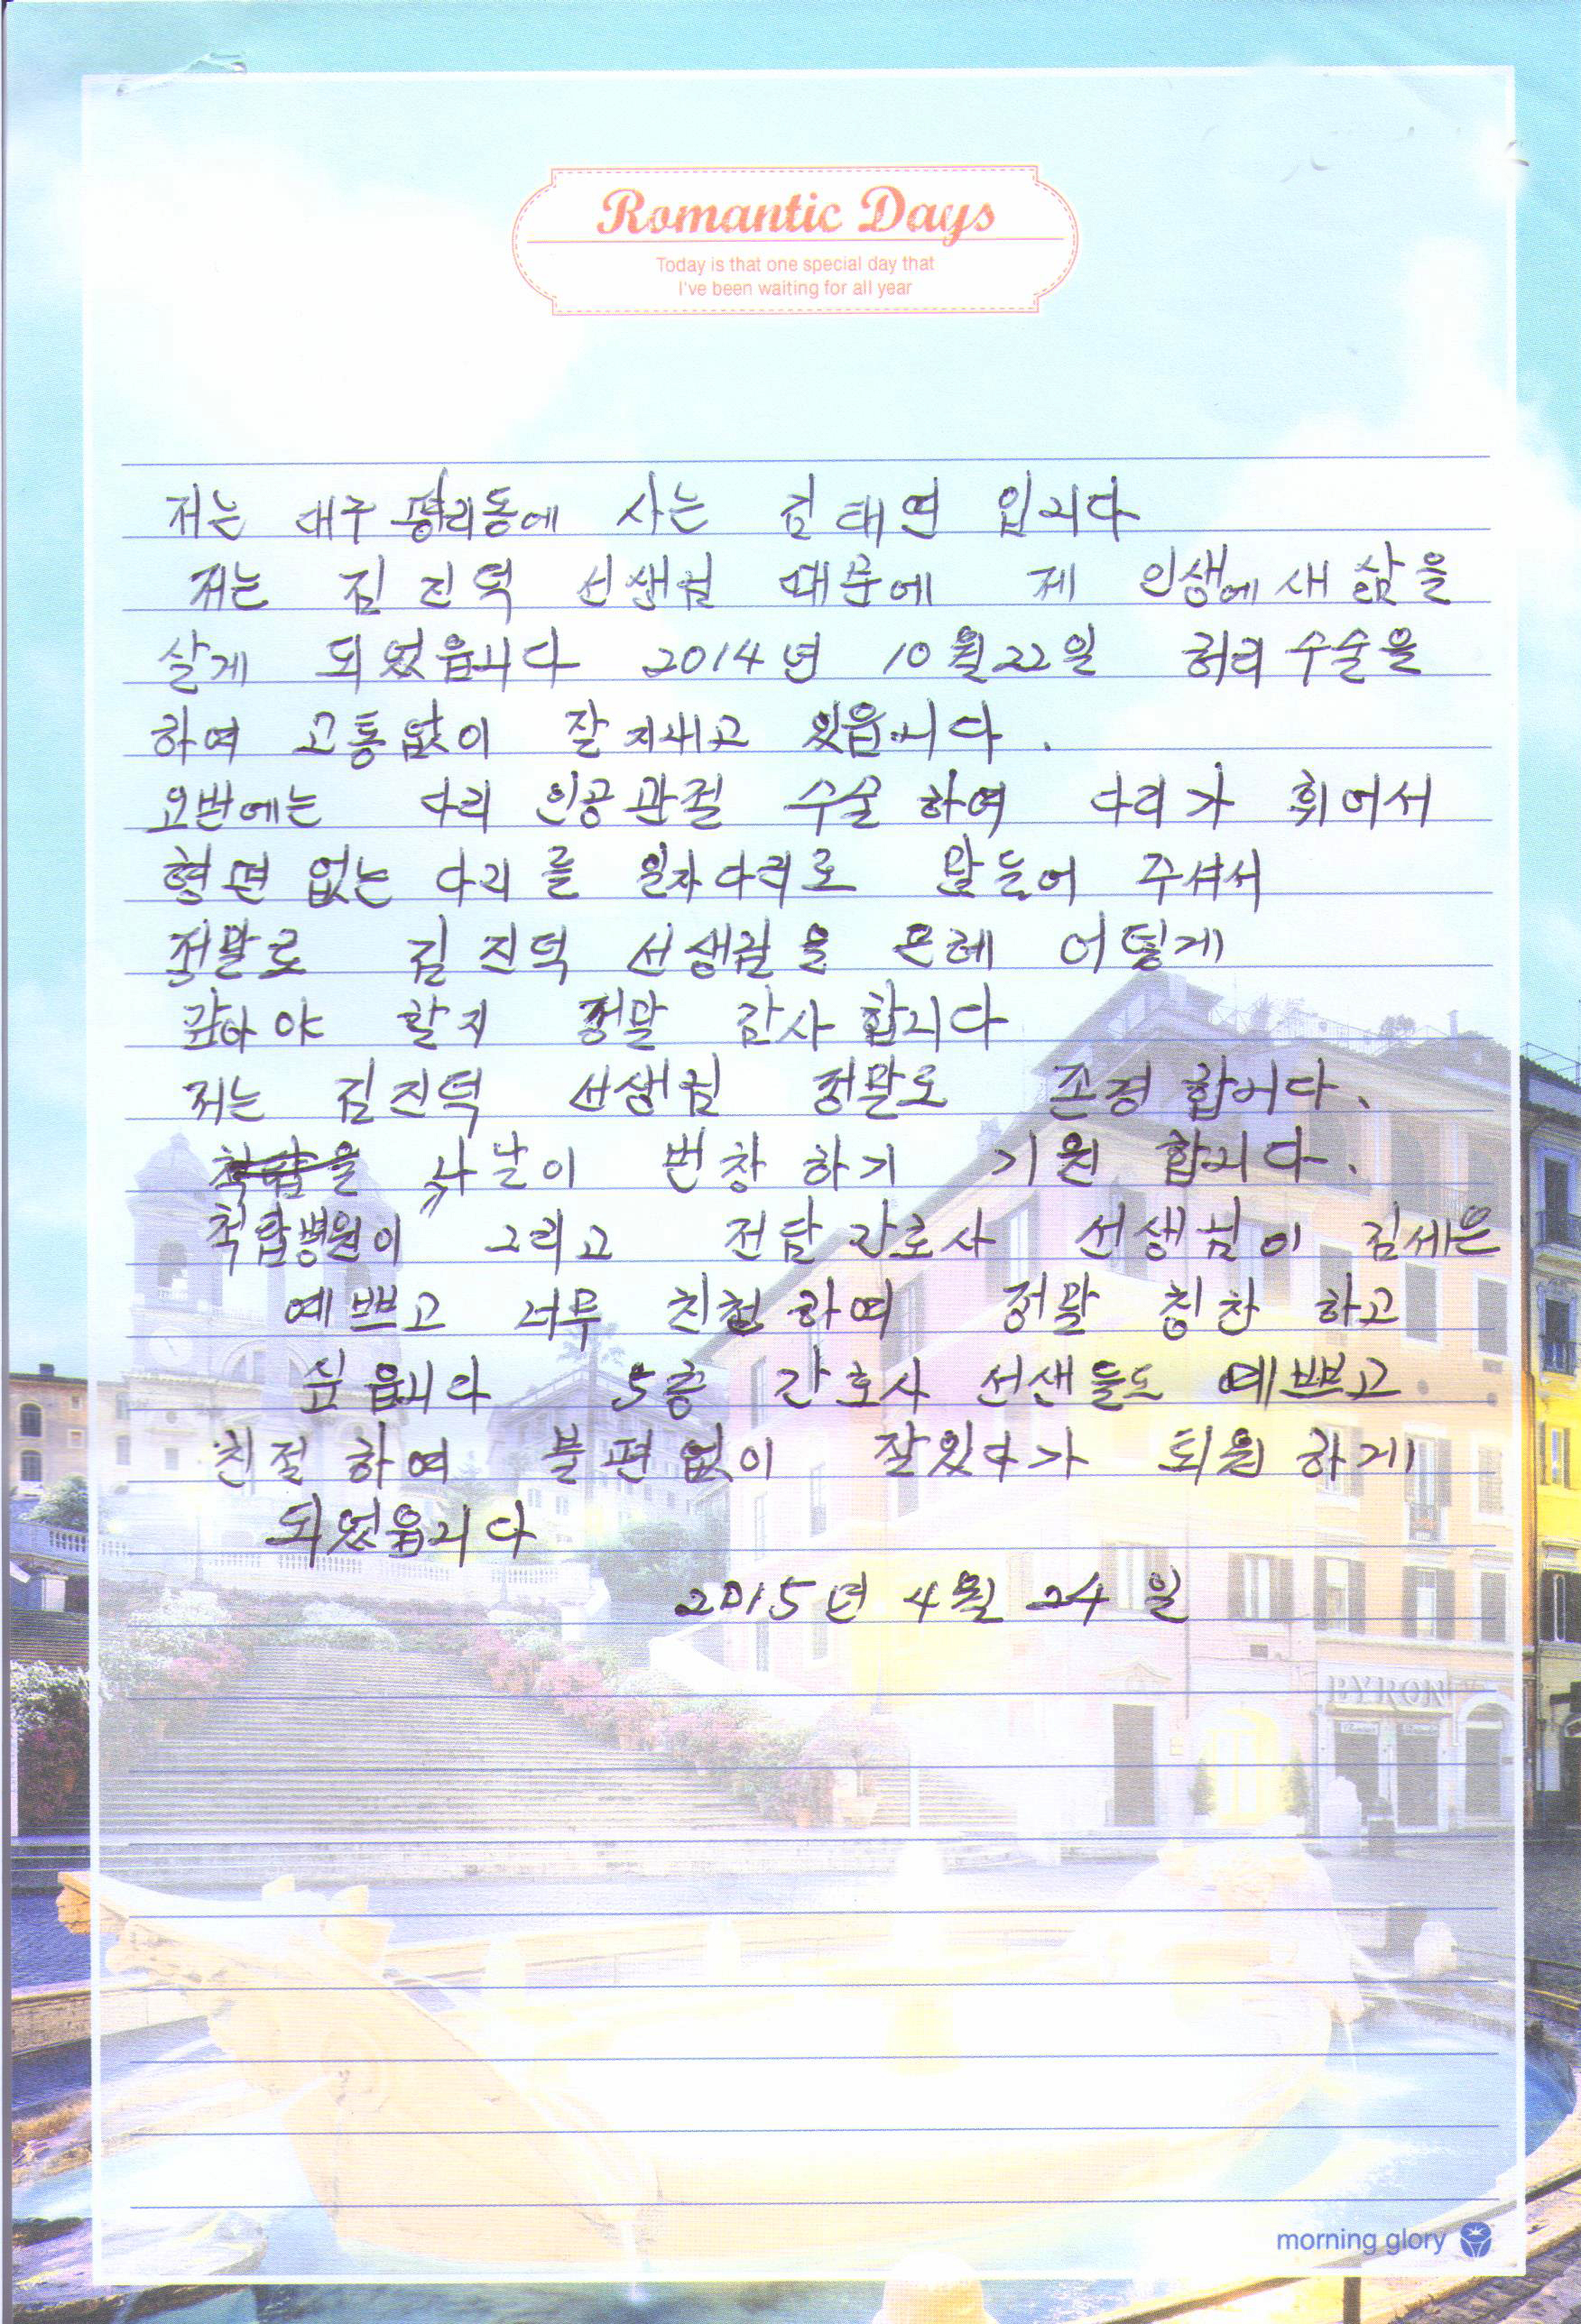 Romantic Days
Today is that one special day that
I've been waiting for all year
저는 대구 평리동에 사는 김태연 입니다
저는 김진덕 선생님 때문에 제 인생에 새 삶을
살게 되었읍니다 2014년 10월 22일 허리 수술을
하여 고통없이 잘 지내고 있읍니다.
요번에는 다리 인공관절 수술 하여 다리가 휘어서
형편 없는 다리를 일자다리로 만들어 주셔서
정말로 김진덕 선생님을 은혜 어떻게
갚아야 할지 정말 감사합니다
저는 김진덕 선생님 정말로 존경 합니다.
을 나날이 번창 하기 기원 합니다.
척탑병원이 그리고 전담 간호사 선생님이 김세은
예쁘고 너무 친절하여 정말 칭찬 하고
싶읍니다 5층 간호사 선샌들도 예쁘고
친절 하여 불편없이 잘있다가 퇴원 하게
되었읍니다
2015년 4월 24일
BYRON
morning glory